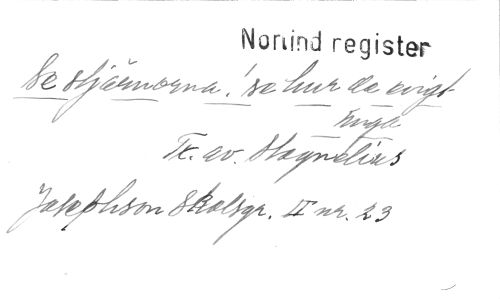 Norlind register
Se stjärnorna! se hur de evigt
unga
Tx. av. Stagnelius
Josephson Skolsgr. II nr. 23